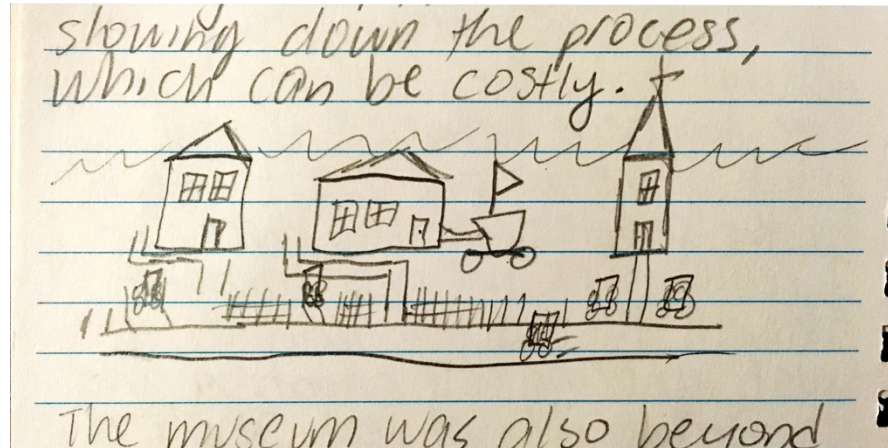 slowing down the process,
which can be costly.
The museum was also beyond